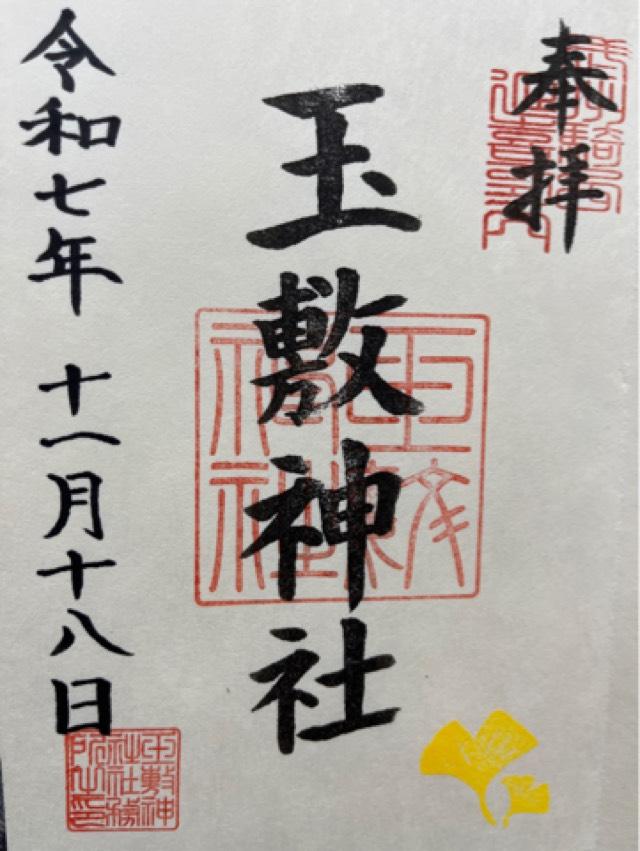 奉拝
玉敷神社
令和七年 十一月十八日
玉敷神社
玉敷神社社務所之印